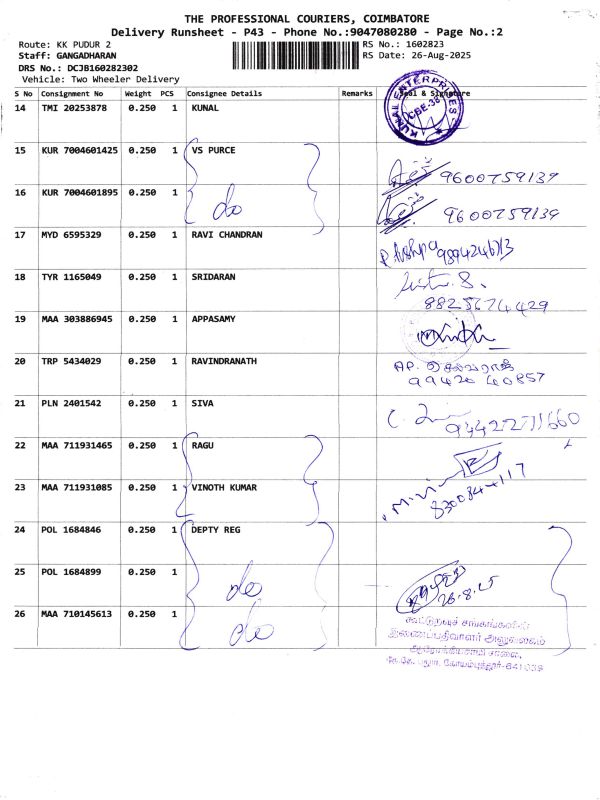 THE PROFESSIONAL COURIERS, COIMBATORE
Delivery Runsheet - P43 - Phone No.:9047080280 - Page No.:2
Route: KK PUDUR 2 RS No.: 1602823
Staff: GANGADHARAN RS Date: 26-Aug-2025
DRS No.: DCJB160282302
Vehicle: Two Wheeler Delivery
S No Consignment No Weight PCS Consignee Details Remarks Seal & Signature
14 TMI 20253878 0.250 1 KUNAL KUNAL ENTERPRISES CBE-38
15 KUR 7004601425 0.250 1 VS PURCE 9600759139
16 KUR 7004601895 0.250 1 do 9600759139
17 MYD 6595329 0.250 1 RAVI CHANDRAN P. Pushpa 9894246713
18 TYR 1165049 0.250 1 SRIDARAN
8825674429
19 MAA 303886945 0.250 1 APPASAMY
20 TRP 5434029 0.250 1 RAVINDRANATH AP. செல்வராஜ்
99420 40857
21 PLN 2401542 0.250 1 SIVA 9442271660
22 MAA 711931465 0.250 1 RAGU
23 MAA 711931085 0.250 1 VINOTH KUMAR
24 POL 1684846 0.250 1 DEPTY REG
25 POL 1684899 0.250 1 do 26.8.25
26 MAA 710145613 0.250 1 do கூட்டுறவுச் சங்கங்களின்
இணைப்பதிவாளர் அலுவலகம்
சாலை,
கே.கே. புதூர், கோயம்புத்தூர்-641038